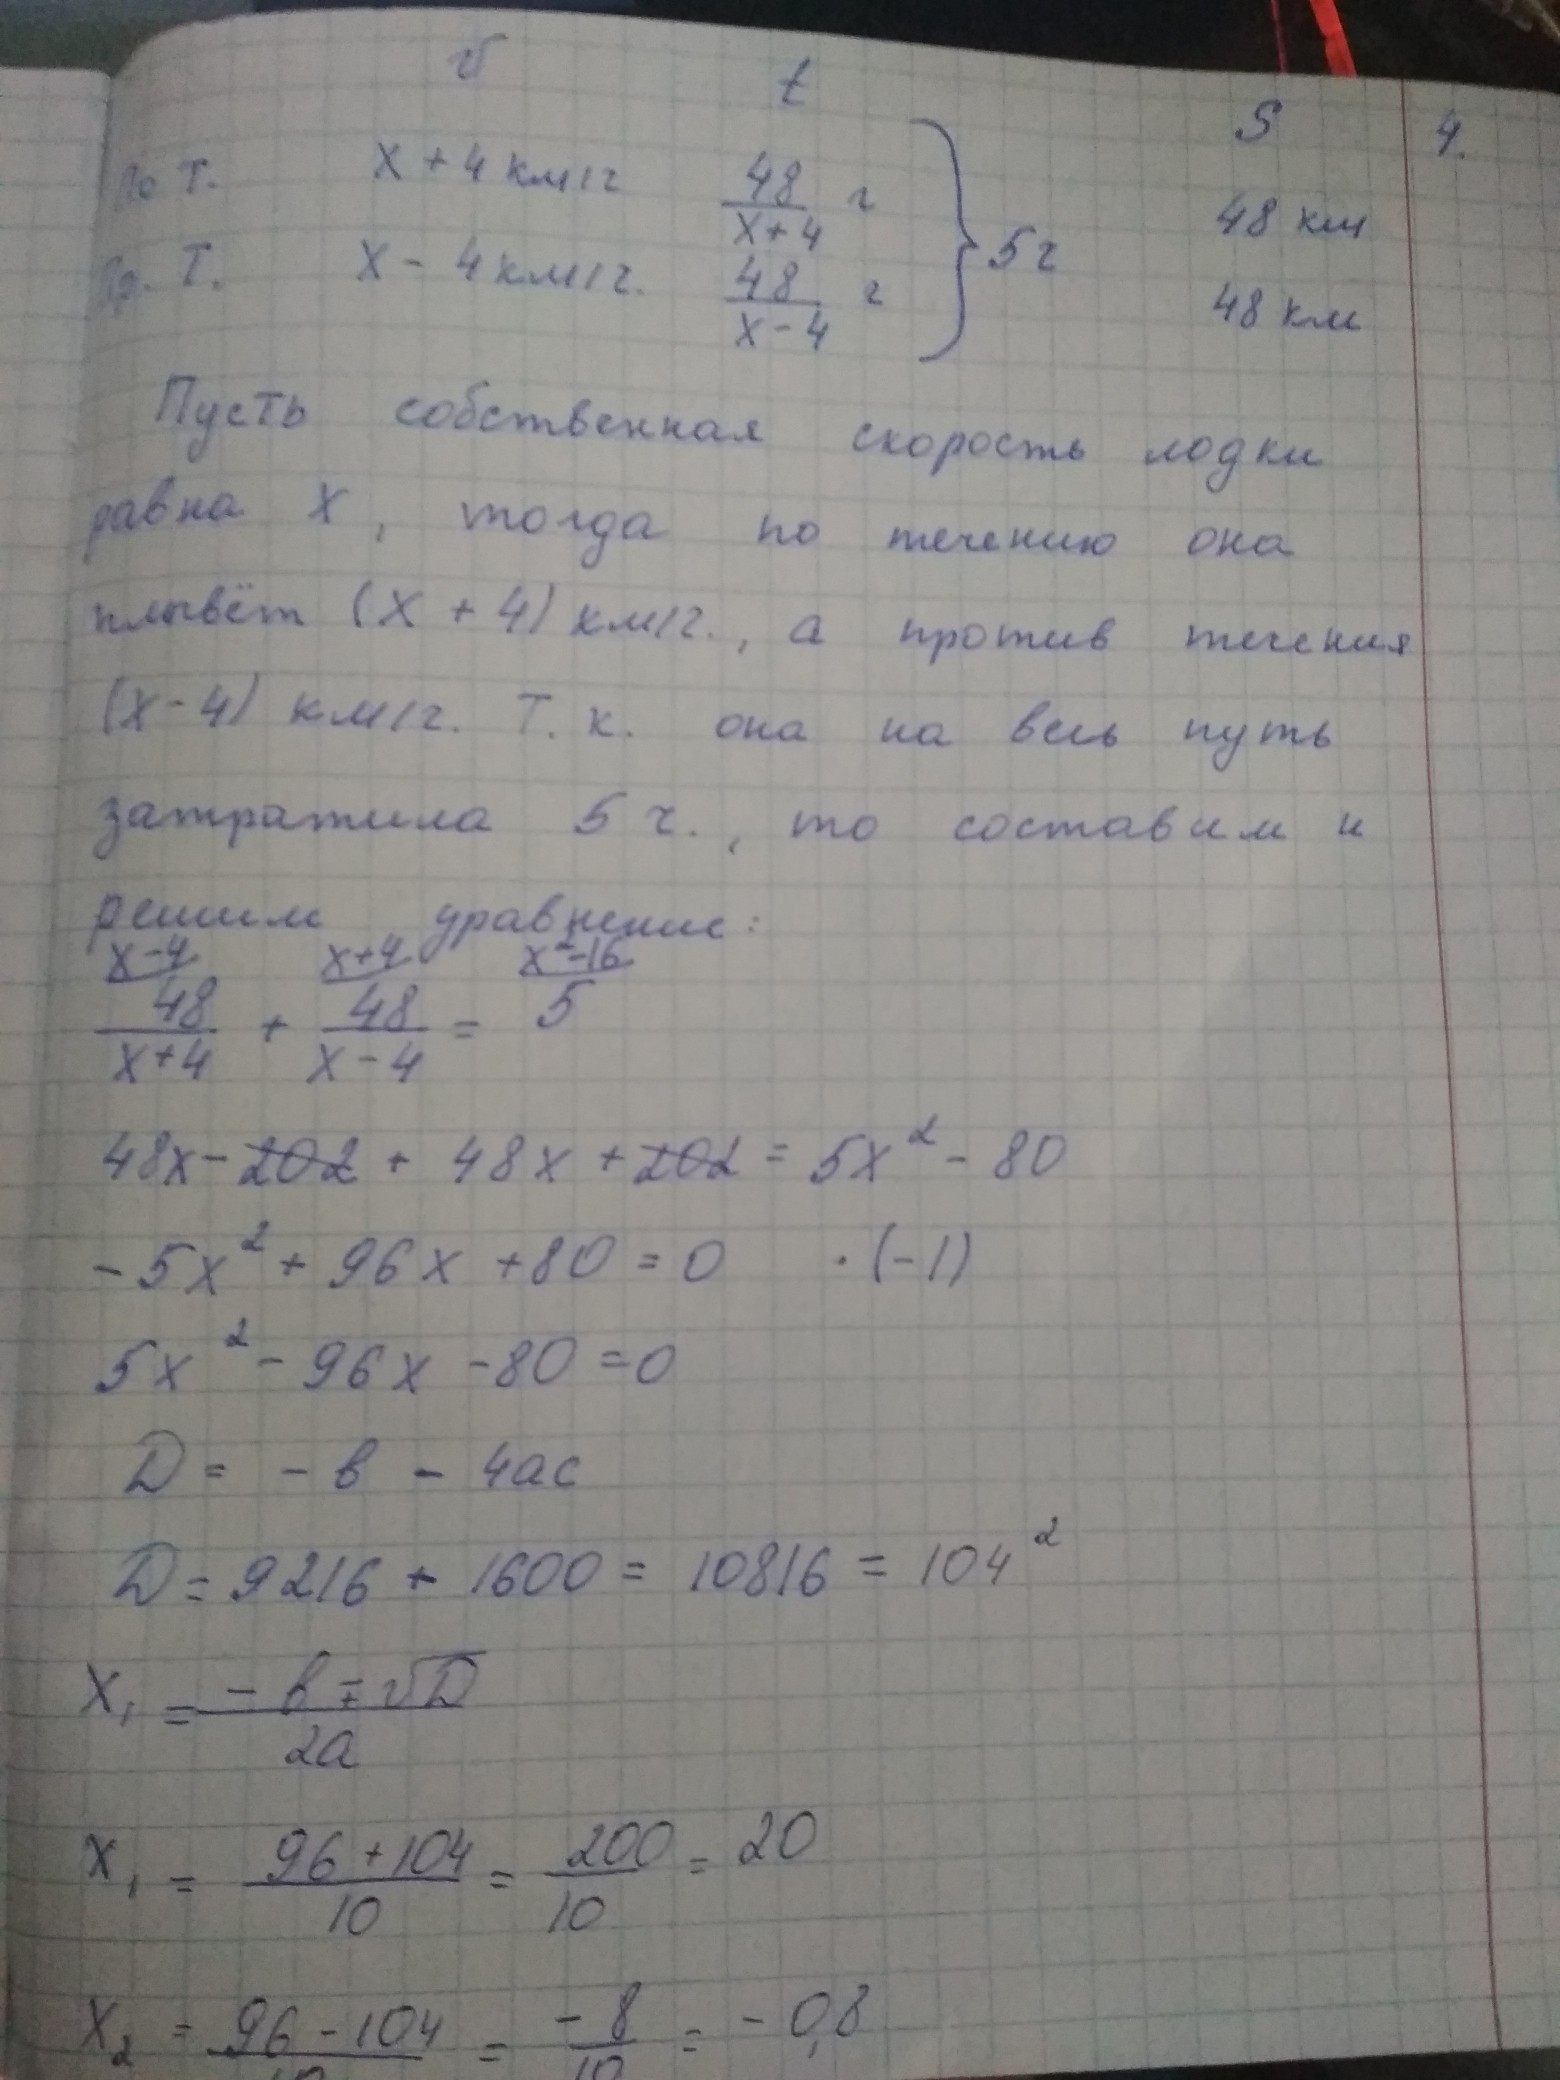 v t S 4.
По т. x + 4 км/ч 48/(x+4) ч 48 км
Пр. т. x - 4 км/ч. 48/(x-4) ч } 5 ч 48 км
Пусть собственная скорость лодки
равна x, тогда по течению она
плывёт (x + 4) км/ч., а против течения
(x - 4) км/ч. Т. к. она на весь путь
затратила 5 ч., то составим и
решим уравнение:
x-4 x+4 x²-16
48/(x+4) + 48/(x-4) = 5
48x - 202 + 48x + 202 = 5x² - 80
-5x² + 96x + 80 = 0 · (-1)
5x² - 96x - 80 = 0
D = - b - 4ac
D = 9216 + 1600 = 10816 = 104²
x₁ = (-b ∓ √D)/2a
x₁ = (96 + 104)/10 = 200/10 = 20
x₂ = (96 - 104)/10 = -8/10 = -0,8